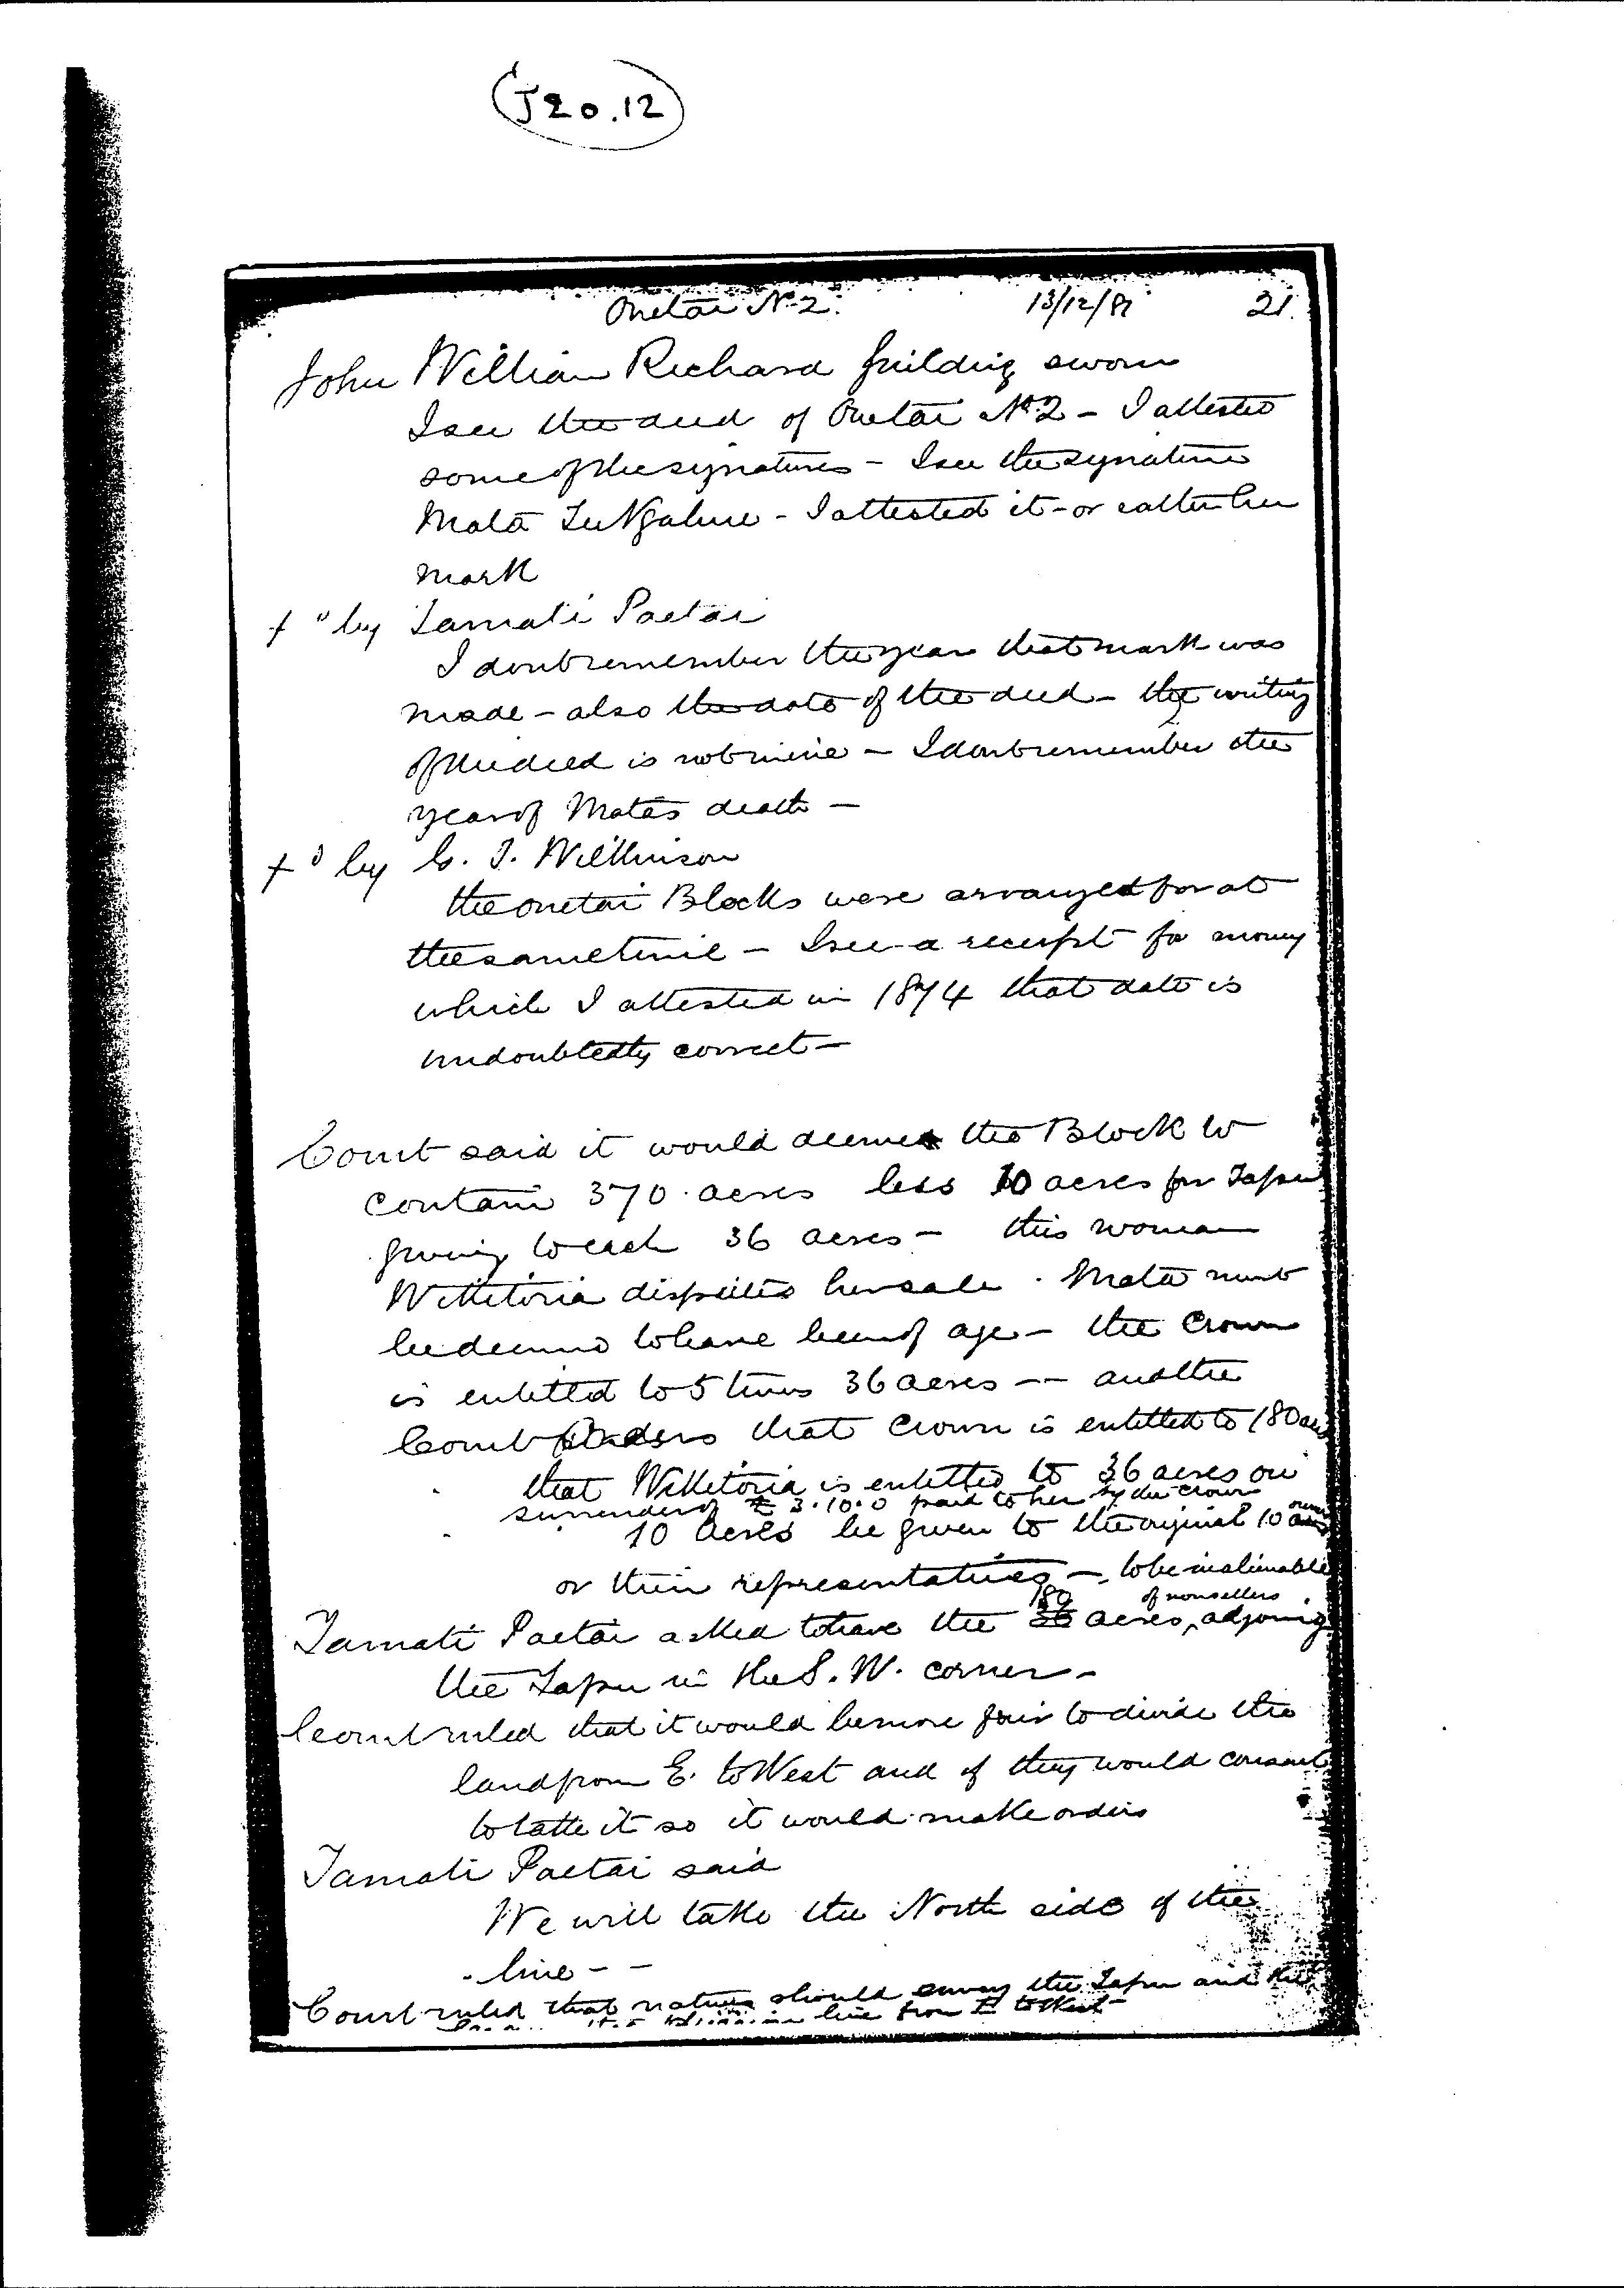 J20.12
Onetai No 2. 13/12/87 21.
John William Richard Guilding sworn
I see the deed of Onetai No 2 - I attested
some of the signatures - I see the signature
Mata - I attested it - or rather her
mark
x d by Tamati Paetai
I dont remember the year that mark was
made - also the date of the deed - the writing
of the deed is not mine - I dont remember the
year of Mata's death -
x d by G. T. Wilkinson
the onetai Blocks were arranged for at
the same time - I see a receipt for money
which I attested in 1874 that date is
undoubtedly correct -
Court said it would deem the Block to
contain 370 acres less 10 acres for Tapu
giving to each 36 acres - this woman
Wikitoria disputes her sale. Mata must
be deemed to have been of age - the Crown
is entitled to 5 times 36 acres -- and the
Court orders that Crown is entitled to 180 acres
that Wikitoria is entitled to 36 acres on
surrender of £ 3.10.0 paid to her by the Crown
10 acres be given to the original 10 owners
or their representatives - to be inalienable
Tamati Paetai asked to have the 180 acres of nonsellers adjoining
the Tapu in the S. W. corner -
Court ruled that it would be more fair to divide the
land from E. to West and if they would consent
to take it so it would make orders
Tamati Paetai said
We will take the North side of the
line - -
Court ruled that natives should survey the Tapu and the
line from E to West -